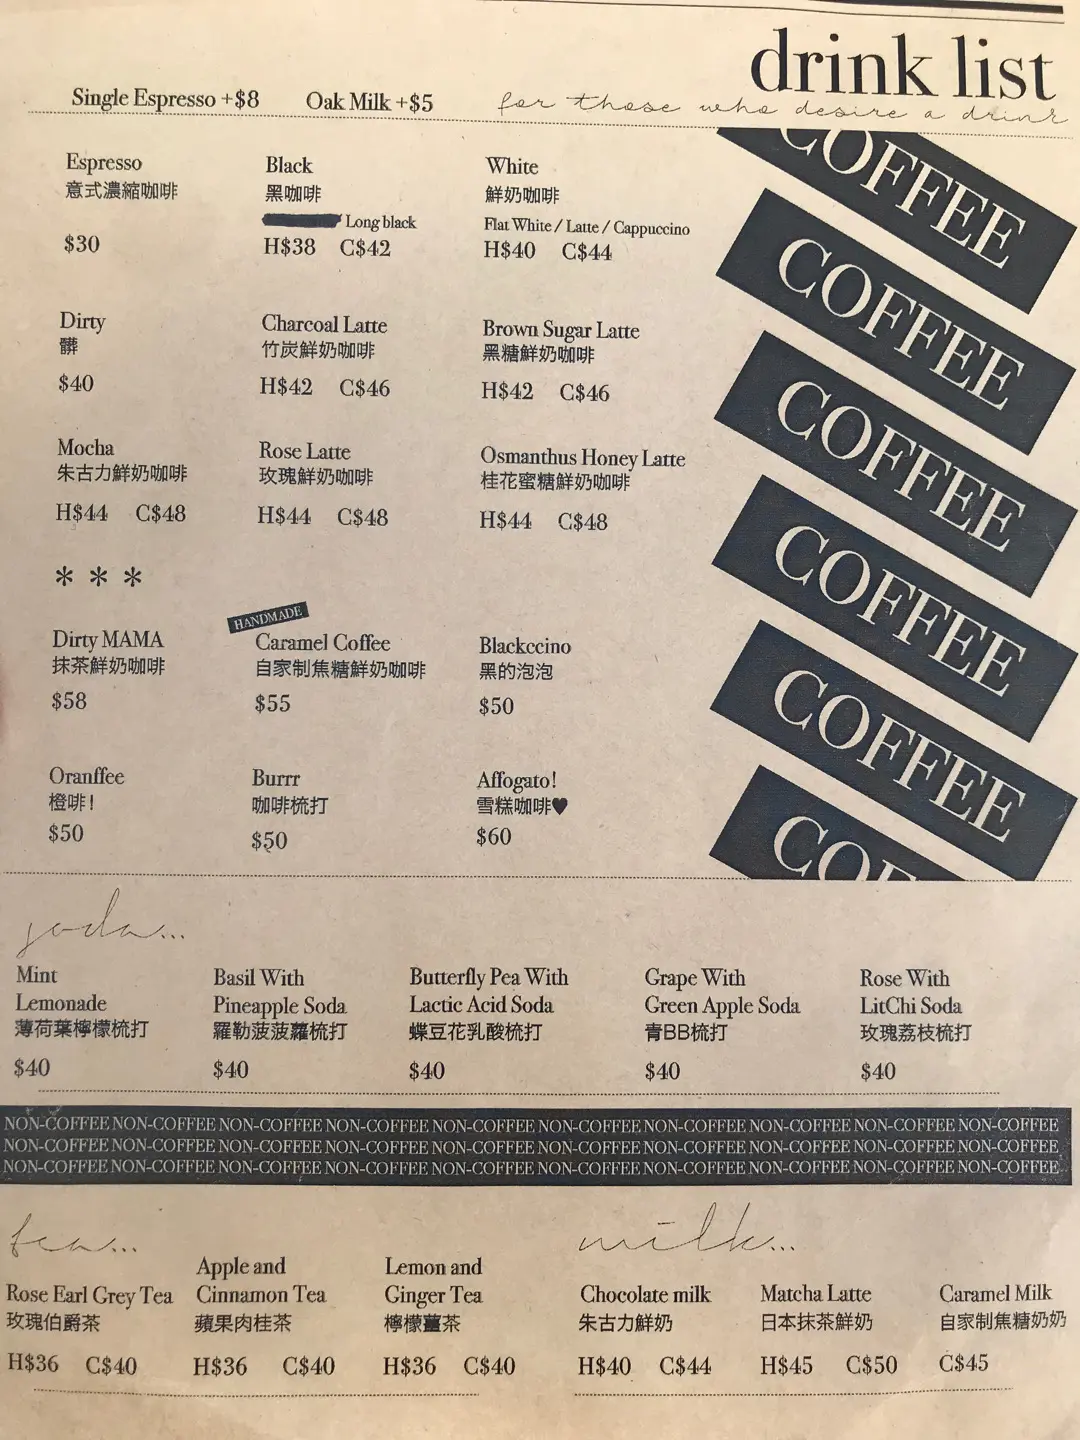 drink list
for those who desire a drink
Single Espresso +$8 Oak Milk +$5
Espresso
意式濃縮咖啡
$30
Black
黑咖啡
Long black
H$38 C$42
White
鮮奶咖啡
Flat White / Latte / Cappuccino
H$40 C$44
Dirty
髒
$40
Charcoal Latte
竹炭鮮奶咖啡
H$42 C$46
Brown Sugar Latte
黑糖鮮奶咖啡
H$42 C$46
Mocha
朱古力鮮奶咖啡
H$44 C$48
Rose Latte
玫瑰鮮奶咖啡
H$44 C$48
Osmanthus Honey Latte
桂花蜜糖鮮奶咖啡
H$44 C$48
***
Dirty MAMA
抹茶鮮奶咖啡
$58
HANDMADE
Caramel Coffee
自家制焦糖鮮奶咖啡
$55
Blackccino
黑的泡泡
$50
Oranffee
橙啡!
$50
Burrr
咖啡梳打
$50
Affogato!
雪糕咖啡♥
$60
COFFEE
COFFEE
COFFEE
COFFEE
COFFEE
COF
soda...
Mint
Lemonade
薄荷葉檸檬梳打
$40
Basil With
Pineapple Soda
羅勒菠菠蘿梳打
$40
Butterfly Pea With
Lactic Acid Soda
蝶豆花乳酸梳打
$40
Grape With
Green Apple Soda
青BB梳打
$40
Rose With
LitChi Soda
玫瑰荔枝梳打
$40
NON-COFFEE NON-COFFEE NON-COFFEE NON-COFFEE NON-COFFEE NON-COFFEE NON-COFFEE NON-COFFEE NON-COFFEE NON-COFFEE
NON-COFFEE NON-COFFEE NON-COFFEE NON-COFFEE NON-COFFEE NON-COFFEE NON-COFFEE NON-COFFEE NON-COFFEE NON-COFFEE
NON-COFFEE NON-COFFEE NON-COFFEE NON-COFFEE NON-COFFEE NON-COFFEE NON-COFFEE NON-COFFEE NON-COFFEE NON-COFFEE
tea...
Rose Earl Grey Tea
玫瑰伯爵茶
H$36 C$40
Apple and
Cinnamon Tea
蘋果肉桂茶
H$36 C$40
Lemon and
Ginger Tea
檸檬薑茶
H$36 C$40
milk...
Chocolate milk
朱古力鮮奶
H$40 C$44
Matcha Latte
日本抹茶鮮奶
H$45 C$50
Caramel Milk
自家制焦糖奶奶
C$45